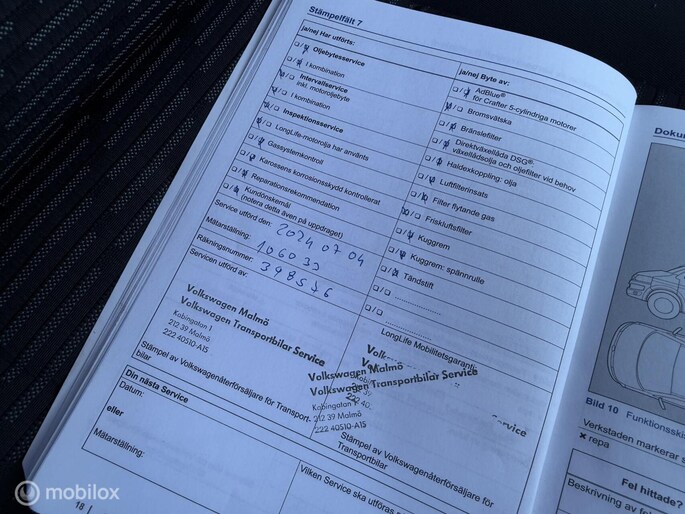 Stämpelfält 7
ja/nej Har utförts:
Oljebytesservice
I kombination
Intervallservice
inkl. motoroljebyte
I kombination
Inspektionsservice
LongLife-motorolja har använts
Gassystemkontroll
Karossens korrosionsskydd kontrollerat
Reparationsrekommendation
Kundönskemål
(notera detta även på uppdraget)
Service utförd den: 2024 07 04
Mätarställning: 106033
Räkningsnummer: 398556
Servicen utförd av:
Volkswagen Malmö
Volkswagen Transportbilar Service
Kabingatan 1
212 39 Malmö
222 40510-A15
Stämpel av Volkswagenåterförsäljare för Transport-
bilar
Din nästa Service
Datum:
eller
Mätarställning:
18
ja/nej Byte av:
AdBlue®
för Crafter 5-cylindriga motorer
Bromsvätska
Bränslefilter
Direktväxellåda DSG®:
växellådsolja och oljefilter vid behov
Haldexkoppling: olja
Luftfilterinsats
Filter flytande gas
Friskluftsfilter
Kuggrem
Kuggrem: spännrulle
Tändstift
LongLife Mobilitetsgaranti
Volkswagen Malmö
Volkswagen Transportbilar Service
Kabingatan 1
212 39 Malmö
222 40510-A15
Stämpel av Volkswagenåterförsäljare för
Transportbilar
Vilken Service ska utföras
Dokum
Bild 10 Funktionsski
Verkstaden markerar s
× repa
Fel hittade?
Beskrivning av fel
mobilox